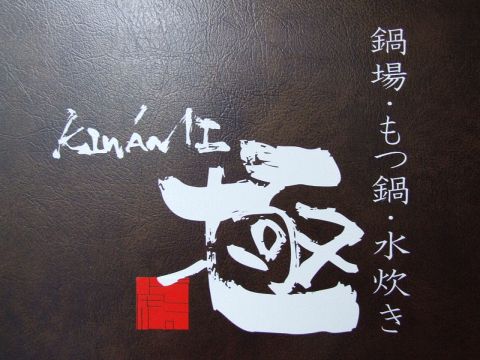 鍋場・もつ鍋・水炊き
極